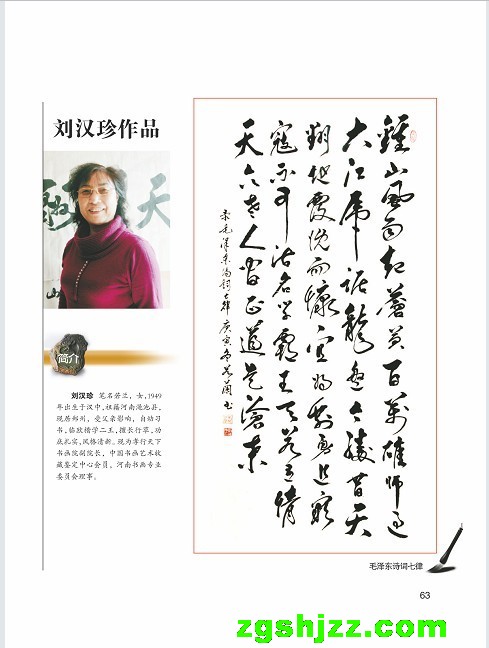 刘汉珍作品
鍾山風雨起蒼黃百萬雄師過
大江虎踞龍盤今勝昔天
翻地覆慨而慷宜將剩勇追窮
寇不可沽名學霸王天若有情
天亦老人間正道是滄桑
录毛泽东诗词七律庚寅年若蘭书
简介
刘汉珍 笔名若兰,女,1949
年出生于汉中,祖籍河南渑池县,
现居郑州,受父亲影响,自幼习
书,临欧楷学二王,擅长行草,功
底扎实,风格清新。现为孝行天下
书画院副院长,中国书画艺术收
藏鉴定中心会员,河南书画专业
委员会理事。
毛泽东诗词七律
63
zgshjzz.com